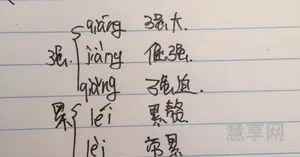 强 qiáng 强大.
jiàng 倔强.
qiǎng 强迫
累 léi 累赘
lèi 劳累
慧享网